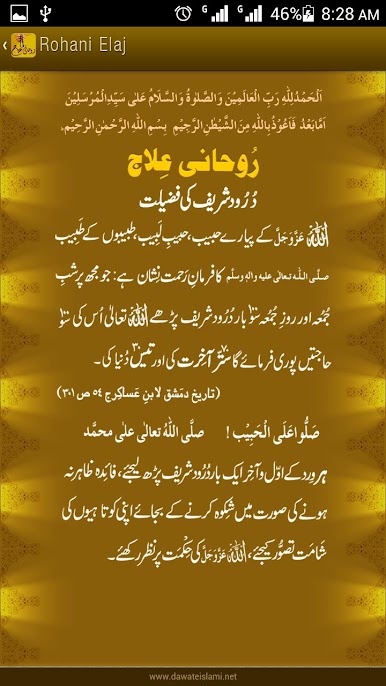 46% 8:28 AM
Rohani Elaj
اَلْحَمْدُ لِلّٰهِ رَبِّ الْعَالَمِيْنَ وَالصَّلٰوةُ وَالسَّلَامُ عَلٰى سَيِّدِ الْمُرْسَلِيْنَ
اَمَّا بَعْدُ فَاَعُوْذُ بِاللّٰهِ مِنَ الشَّيْطٰنِ الرَّجِيْمِ بِسْمِ اللّٰهِ الرَّحْمٰنِ الرَّحِيْمِ
رُوحانی عِلاج
دُرُود شریف کی فضیلت
اللہ عَزَّوَجَلَّ کے پیارے حبیب، حبیبِ لَبِیب، طبیبوں کے طَبِیب
صلَّی اللہ تعالٰی علیہ واٰلہٖ وسلَّم کا فرمانِ رَحمت نِشان ہے: جو مجھ پر شبِ
جُمُعہ اور روزِ جُمُعہ سو ۱۰۰ بار دُرُود شریف پڑھے اللہ تعالٰی اُس کی سو ۱۰۰
حاجتیں پوری فرمائے گا ستَّر ۷۰ آخرت کی اور تیس ۳۰ دُنیا کی۔
(تاریخ دمشق لابنِ عَساکِر ج ٥٤ ص ٣٠١)
صَلُّوا عَلَی الْحَبِیْب! صلَّی اللہُ تعالٰی علٰی محمَّد
ہر وِرد کے اوّل و آخِر ایک بار دُرُود شریف پڑھ لیجئے، فائدہ ظاہر نہ
ہونے کی صورت میں شکوہ کرنے کے بجائے اپنی کوتاہیوں کی
شامَت تصوُّر کیجئے، اللہ عَزَّوَجَلَّ کی حِکْمت پر نظر رکھئے۔
www.dawateislami.net